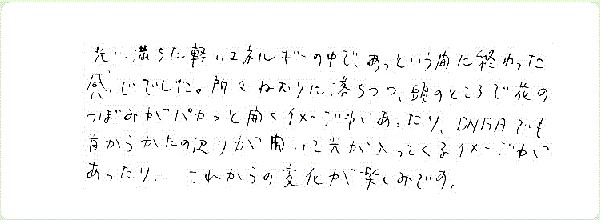 光に満ちた軽いエネルギーの中で、あっという間に終わった
感じでした。所々ねむりに落ちつつ、頭のところで花の
つぼみがパカっと開くイメージがあったり、DNAでも
首からかたの辺りが開いて光が入ってくるイメージがで
あったり、これからの変化が楽しみです。